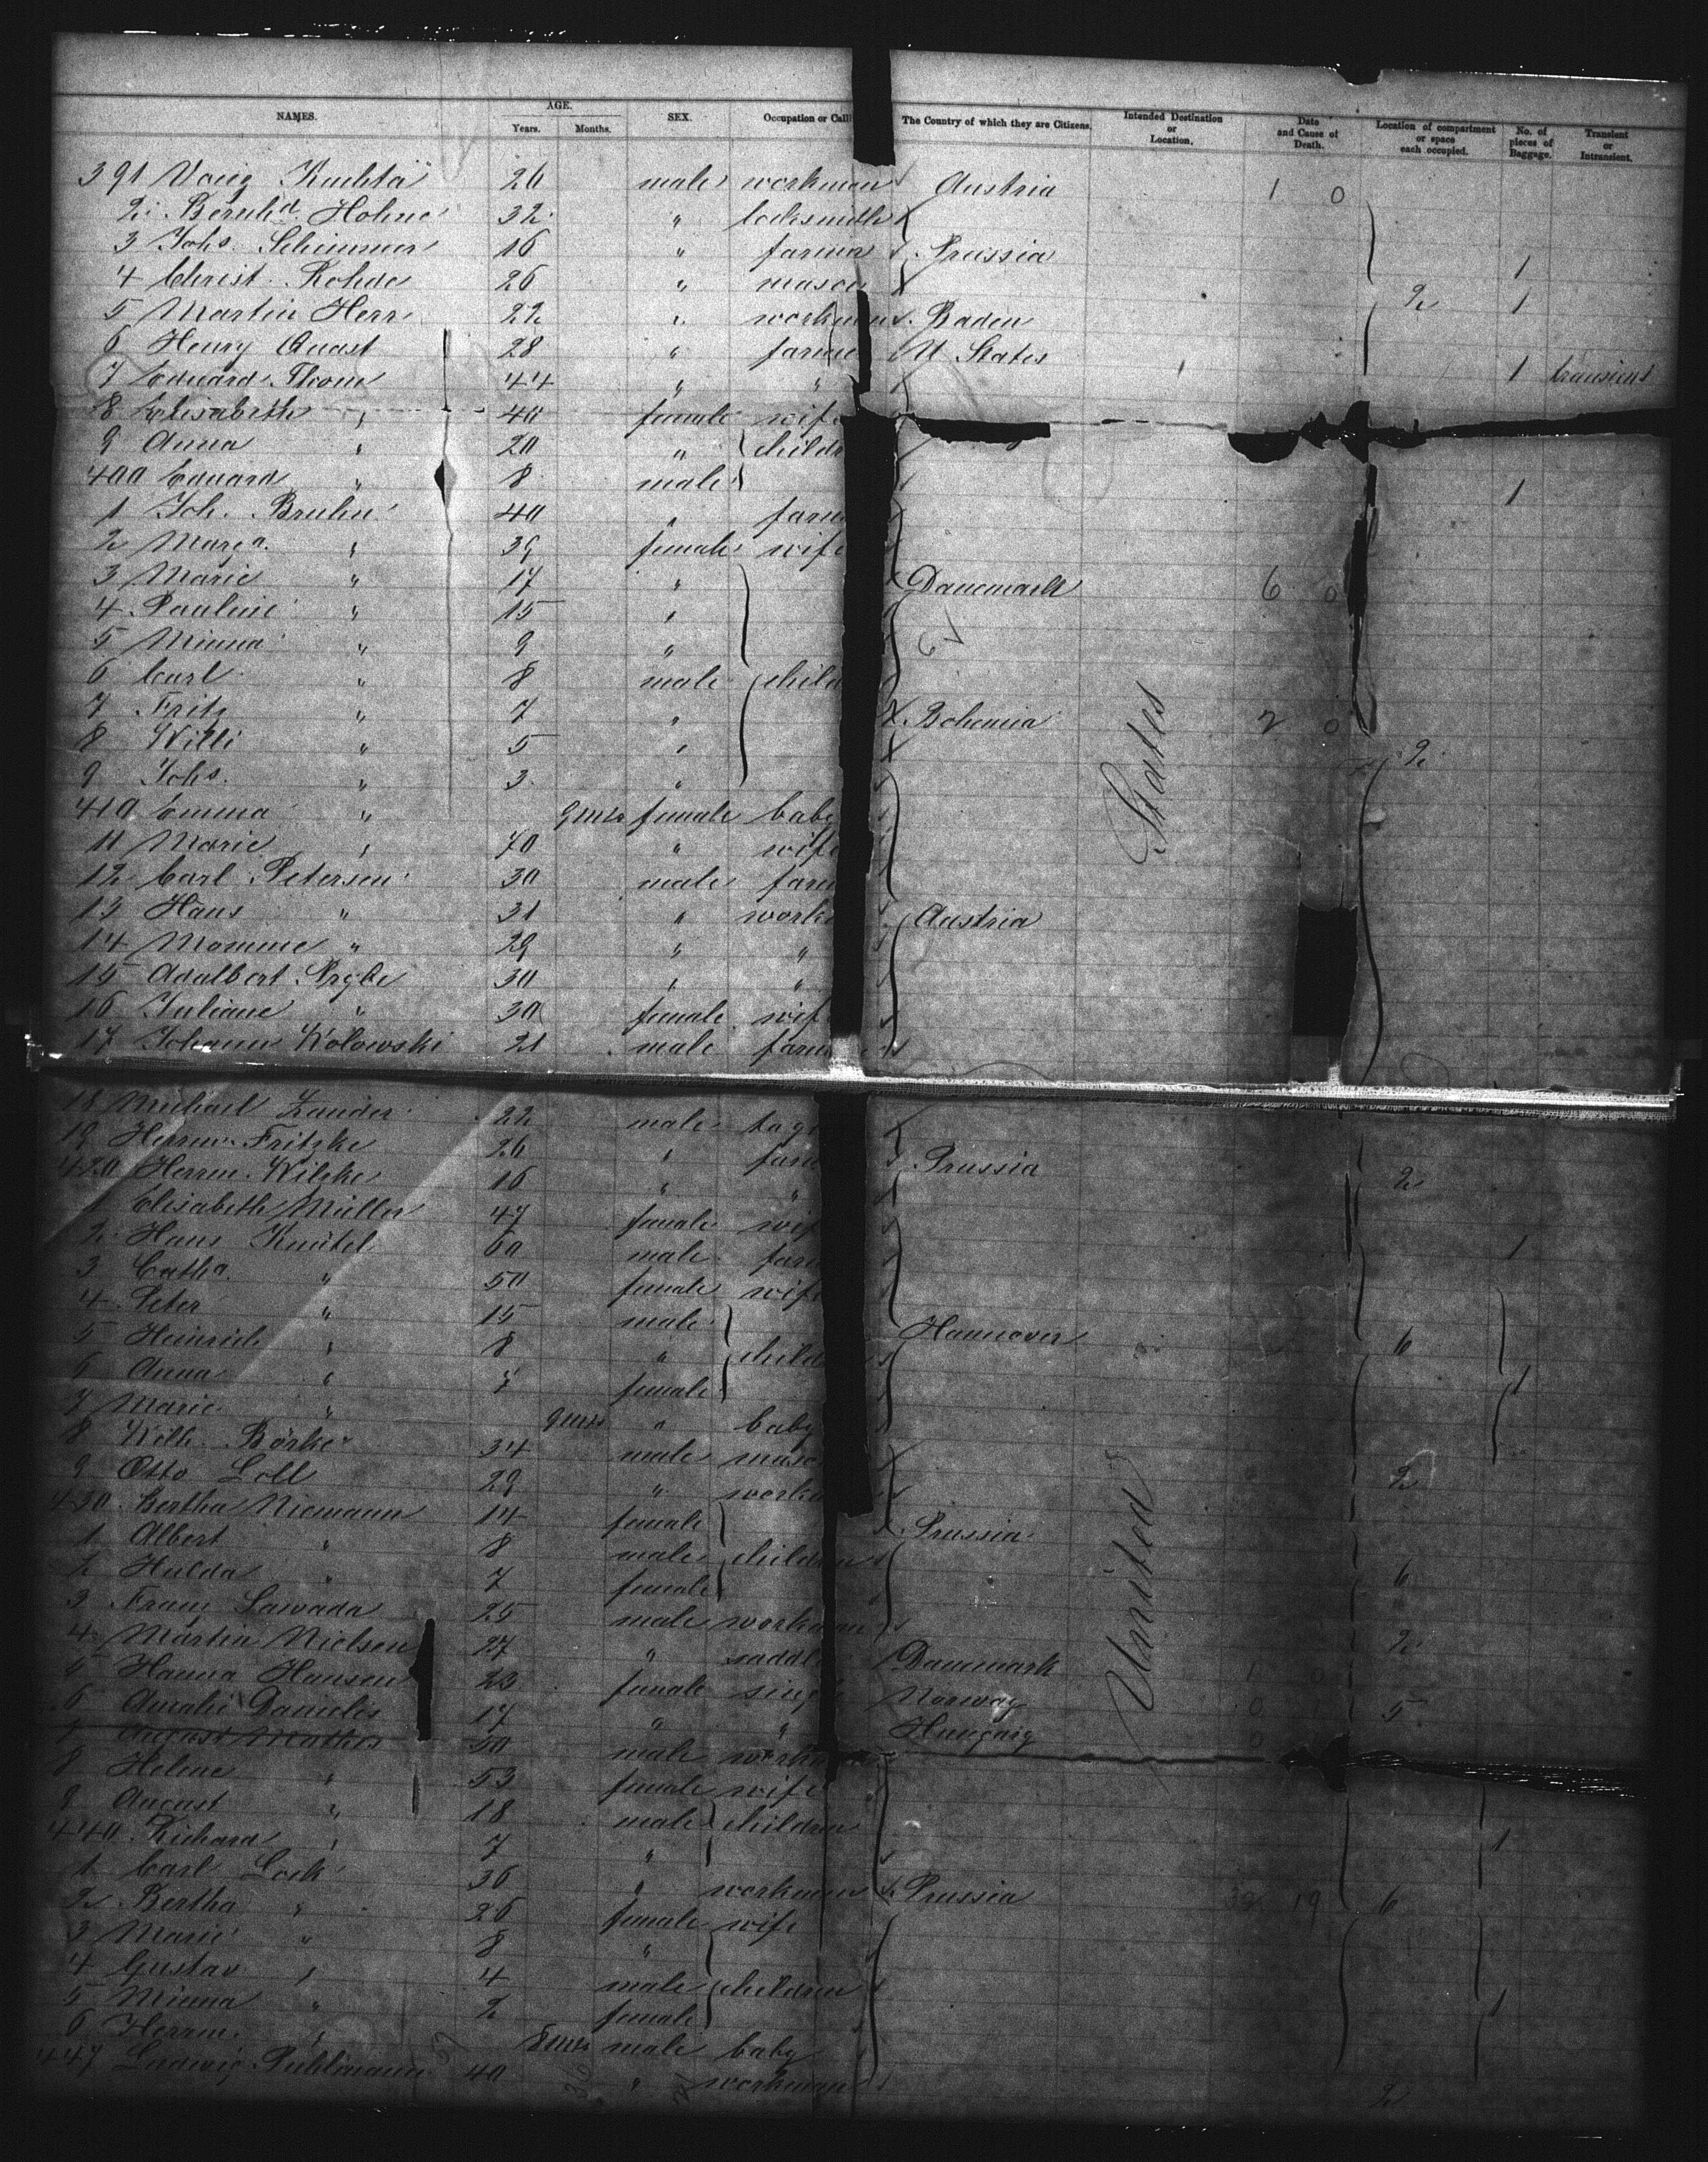 NAMES. AGE. Years. Months. SEX. Occupation or Call The Country of which they are Citizens. Intended Destination or Location. Date and Cause of Death. Location of compartment or space each occupied. No. of pieces of Baggage. Transient or Intransient.
391 26 male workman Austria 1 0
2 Bernhd. Hohne 32 " locksmith
3 Johs. Schimmer 16 " farmer Prussia
4 Christ. Rohde 26 " mason 1
5 Martin Herr 22 " workman Baden 2 1
6 Henry Quast 28 " farmer U States
7 Eduard Thom 44 " " 1 transient
8 Elisabeth " 40 female wife
9 Anna " 20 " childr
400 Eduard " 8 male 1
1 Joh. Bruhn 40 " farm
2 Marga. " 39 female wife
3 Marie " 17 " Danemark 6 0
4 Pauline " 15 "
5 Minna " 9 "
6 Carl " 8 male child
7 Fritz " 7 " Bohemia 2 0
8 Willi " 5 " 2
9 Johs. " 3 "
410 Emma " 9 mts female baby
11 Marie " 70 " wife
12 Carl Petersen 30 male farm
13 Hans " 31 " work Austria
14 Momme " 29 " "
15 Adalbert 30 " "
16 Juliane " 30 female wife
17 Johann Kolowski 21 male farm
18 Michael Zander 22 male
19 Herrm. Fritzke 26 " farm Prussia
420 Herrm. Wilzke 16 " " 2
1 Elisabeth Müller 47 female wif
2 Hans Knütel 60 male farm 1
3 Catha. " 50 female wife
4 Peter " 15 male Hannover
5 Heinrich " 8 " child 6
6 Anna " 7 female 1
7 Marie " 9 mts " baby
8 Wilh. Börke 34 male maso
9 Otto Loll 29 " workm 2
430 Bertha Niemann 14 female Prussia
1 Albert " 8 male children
2 Hulda " 7 female 6
3 Franz Sawada 25 male workman
4 Martin Nielsen 27 " saddl Danemark 1 0 2
5 Hanna Hansen 23 female single Norway 0 1 5
6 Amalie Daniels 17 " " Hungary 0
7 August Mathes 50 male workm
8 Helene " 53 female wife
9 August " 18 male children
440 Richard " 7 " 1
1 Carl Lock 36 " workman Prussia 32 19 6
2 Bertha " 26 female wife
3 Marie " 8 "
4 Gustav " 4 male children
5 Minna " 2 female 1
6 Herrm. " 8 mts male baby
447 Ludwig Puhlmann 40 " workman 2
United States